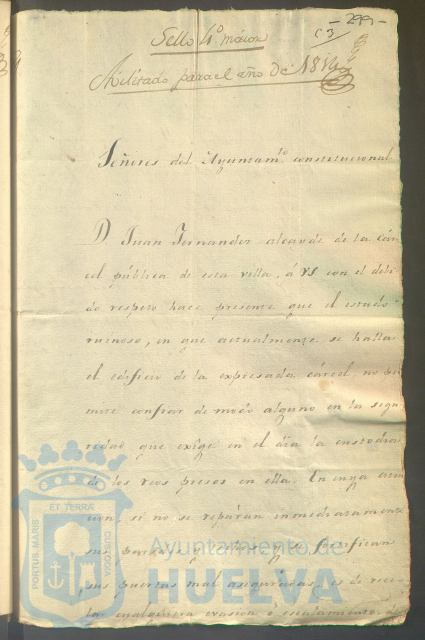 - 299 -
C 3
Sello 4.º maior
Avilitado para el año de 1814
Señores del Ayuntam.to constitucional
D. Juan Fernandez alcayde de la cár
cel pública de esta villa, á VS con el debi
do respeto hace presente que el estado
ruinoso, en que actualmente se halla
el edificio de la expresada cárcel no per
mite confiar de modo alguno en la segu
ridad que exîge en el dia la custodia
de los reos presos en ella. En cuya aten
cion, si no se reparan inmediatamente
sus paredes y se fortifican
sus puertas mal aseguradas, es de rece
lar qualquiera evasion ó escalamiento
PORTUS MARIS
ET TERRÆ
CUSTODIA
Ayuntamiento de
HUELVA